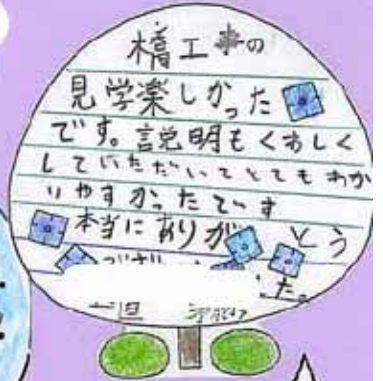 橋工事の
見学楽しかった
です。説明もくわしく
していただいてとてもわか
りやすかったてす
本当にありがとう
た。